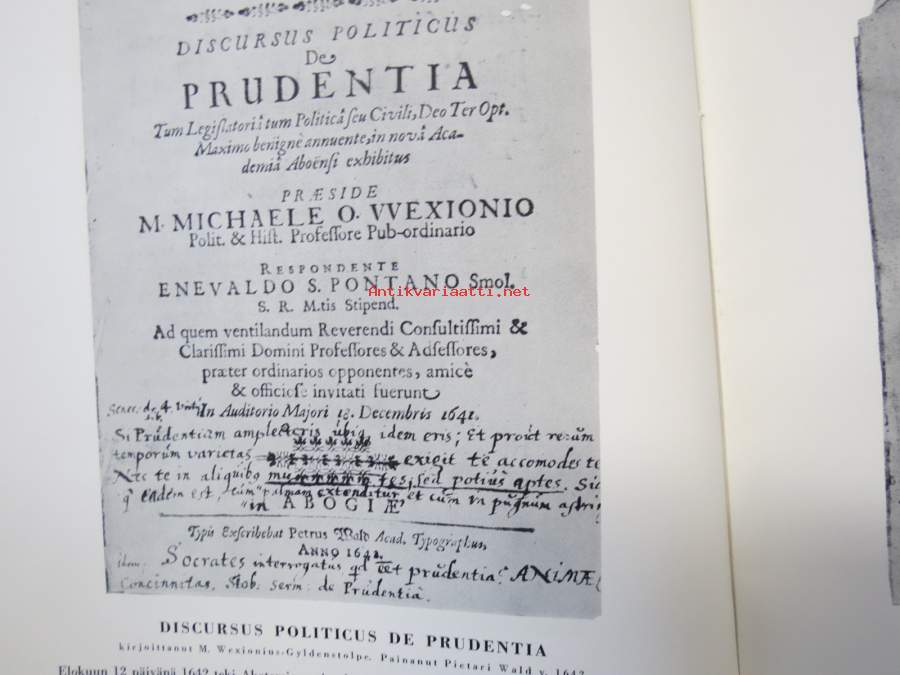 DISCURSUS POLITICUS
De
PRUDENTIA
Tum Legiſlatoriâ tum Politicâ ſeu Civili, Deo Ter Opt.
Maximo benignè annuente, in novâ Aca-
demiâ Aboënſi exhibitus
PRÆSIDE
M. MICHAELE O. VVEXIONIO
Polit. & Hiſt. Profeſſore Pub-ordinario
RESPONDENTE
ENEVALDO S. PONTANO Smol.
Antikvariaatti.net
S. R. M.tis Stipend.
Ad quem ventilandum Reverendi Conſultiſſimi &
Clariſſimi Domini Profeſſores & Adſeſſores,
præter ordinarios opponentes, amicè
& officioſe invitati fuerunt
Senec. de 4. Virt. In Auditorio Majori Decembris 1641.
Si Prudentiam amplecteris ubiq idem eris; Et prout rerum
temporum varietas exigit te accomodes te
Nec te in aliquibq mutes, sed potius aptes. Sic
q eadem est, cum palmam extenditur et cum in pugnum
in ABOGIÆ
Typis Exſcribebat Petrus Wald Acad. Typographus,
ANNO 1642.
Socrates interrogatus qd prudentia? ANIMÆ
Concinnitas. Stob. serm. de Prudentia.
DISCURSUS POLITICUS DE PRUDENTIA
kirjoittanut M. Wexionius-Gyldenstolpe. Painanut Pietari Wald v. 1642
Elokuun 12 päivänä 1642 teki